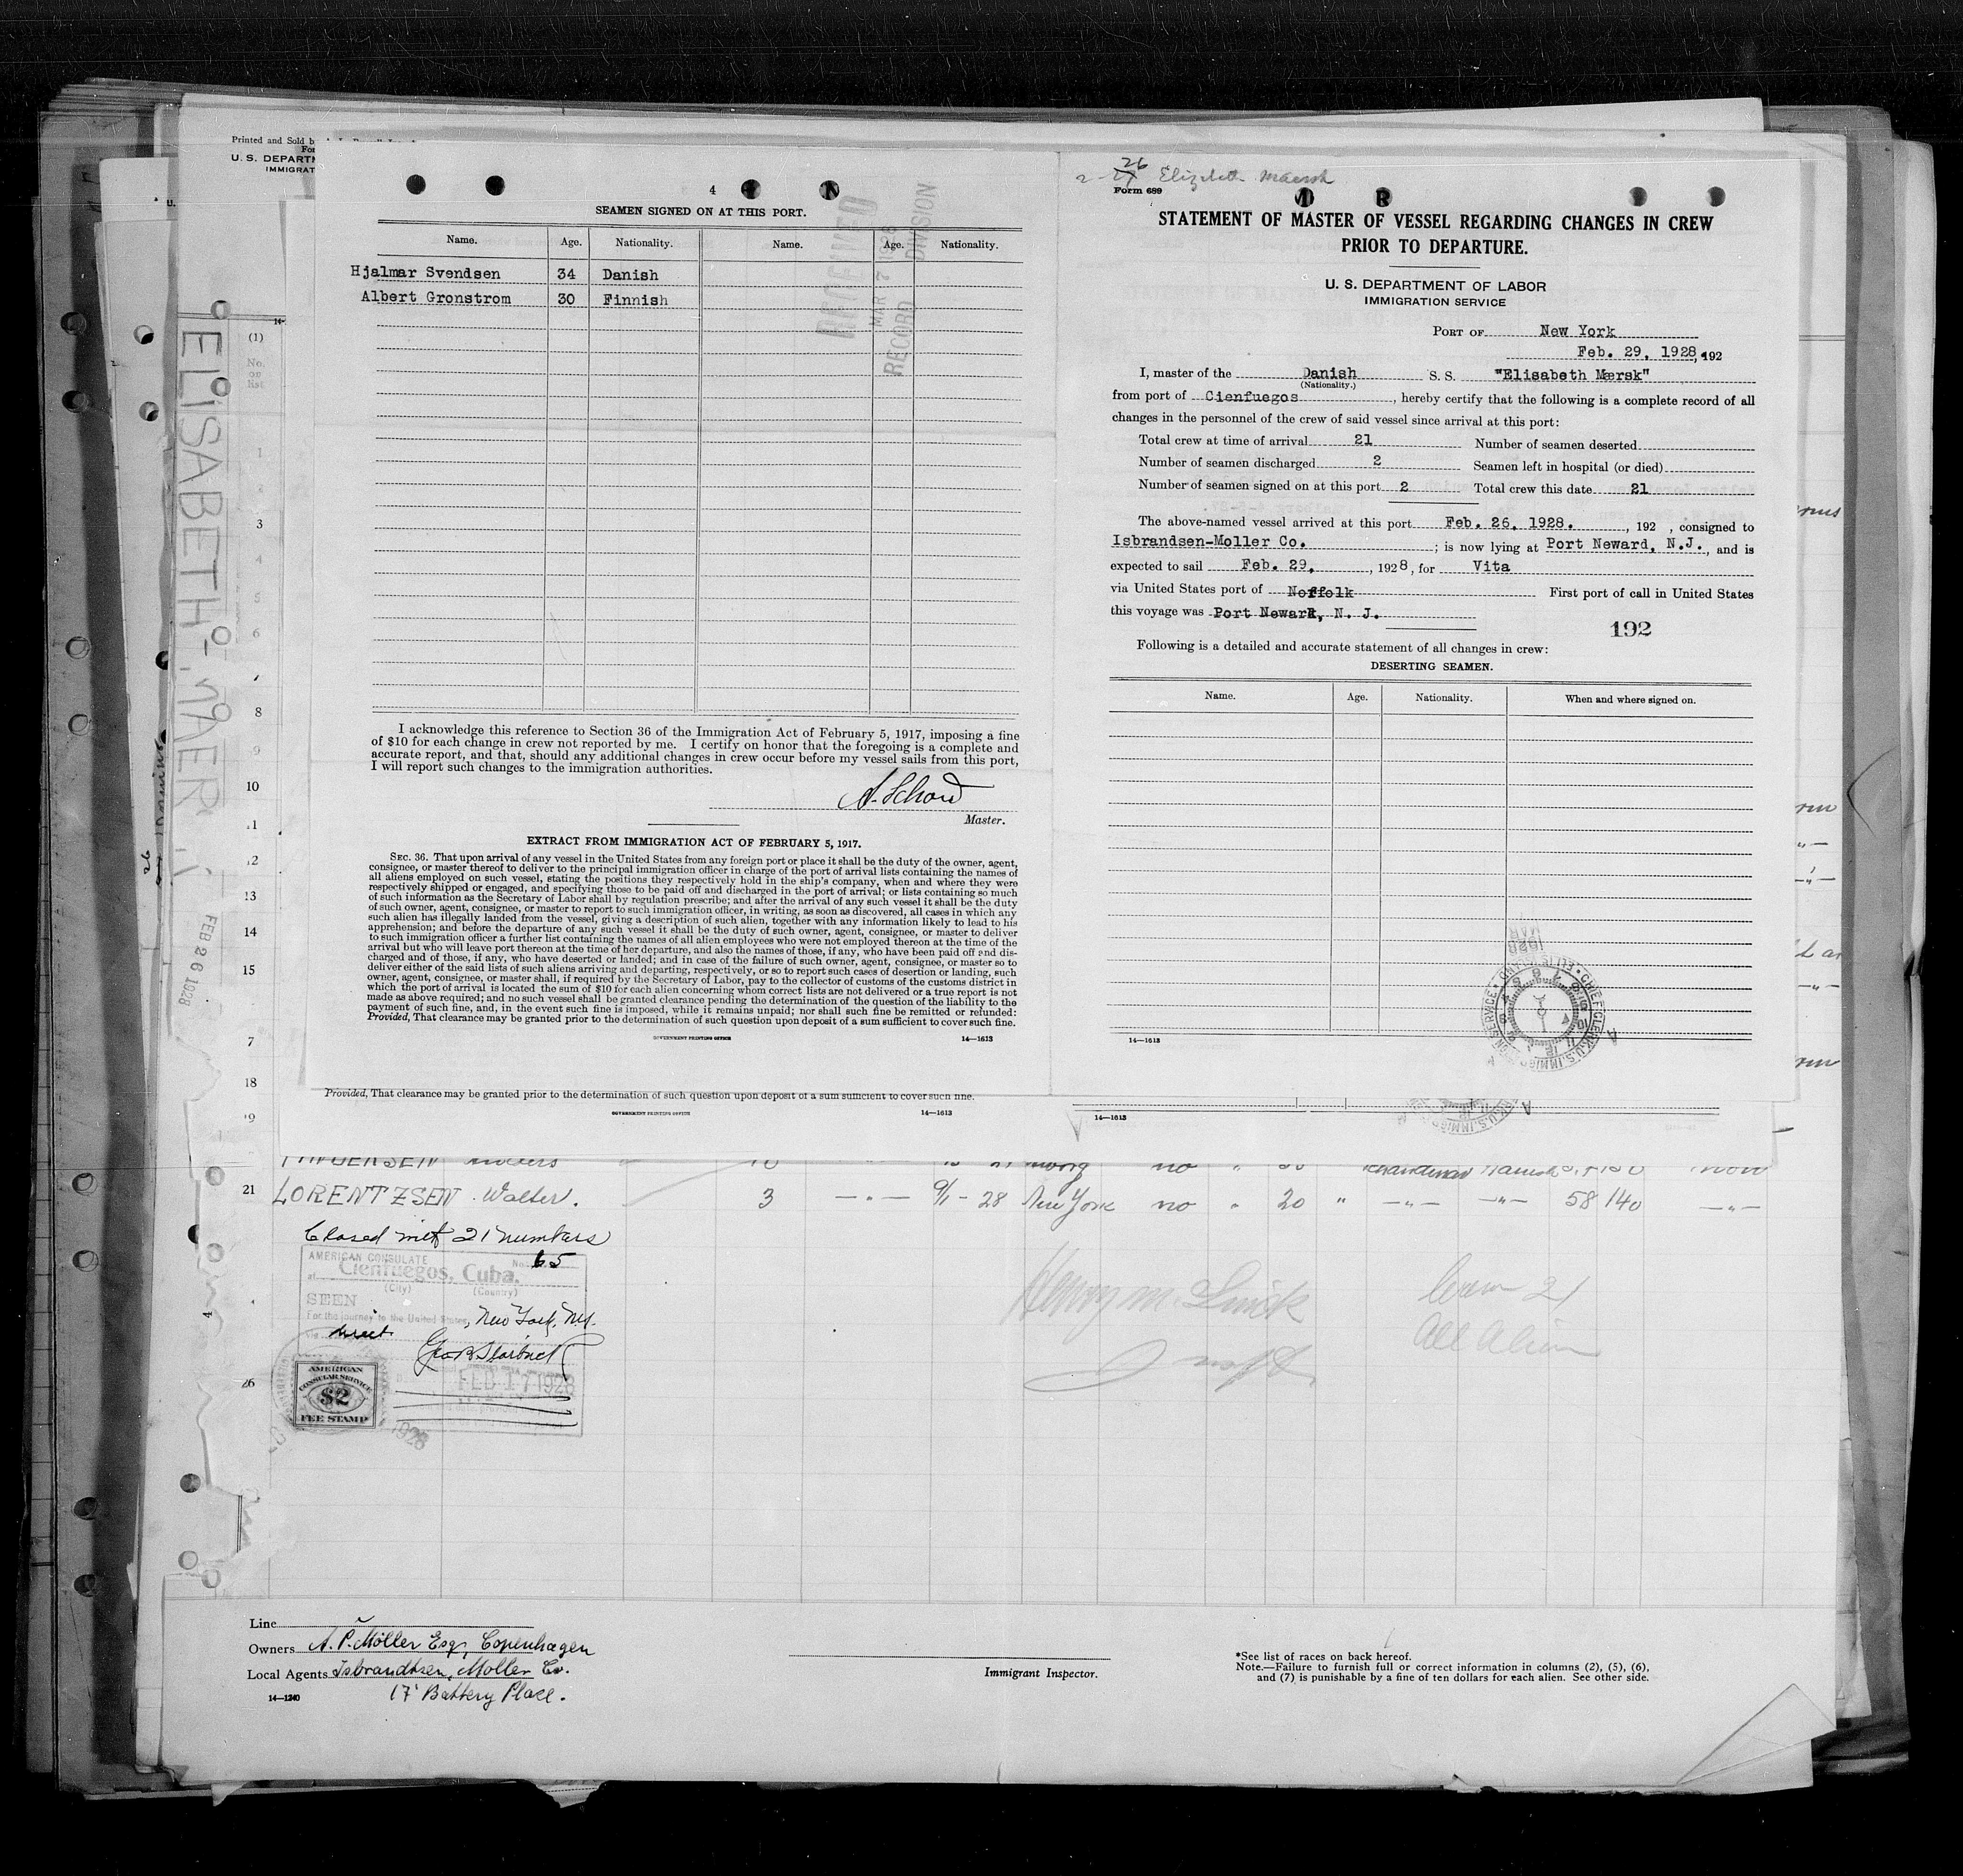 Printed and Sold b
For
U. S. DEPARTM
IMMIGRAT
ELISABETH - MÆR
FEB 26 1928
(1)
No.
on
list
1
2
3
4
5
6
8
9
10
12
13
14
15
7
18
19
21
26
4
SEAMEN SIGNED ON AT THIS PORT.
Name. Age. Nationality. Name. Age. Nationality.
Hjalmar Svendsen 34 Danish
Albert Gronstrom 30 Finnish
RECEIVED
MAR 7 1928
RECORD DIVISION
I acknowledge this reference to Section 36 of the Immigration Act of February 5, 1917, imposing a fine
of $10 for each change in crew not reported by me. I certify on honor that the foregoing is a complete and
accurate report, and that, should any additional changes in crew occur before my vessel sails from this port,
I will report such changes to the immigration authorities.
Master.
EXTRACT FROM IMMIGRATION ACT OF FEBRUARY 5, 1917.
SEC. 36. That upon arrival of any vessel in the United States from any foreign port or place it shall be the duty of the owner, agent,
consignee, or master thereof to deliver to the principal immigration officer in charge of the port of arrival lists containing the names of
all aliens employed on such vessel, stating the positions they respectively hold in the ship's company, when and where they were
respectively shipped or engaged, and specifying those to be paid off and discharged in the port of arrival; or lists containing so much
of such information as the Secretary of Labor shall by regulation prescribe; and after the arrival of any such vessel it shall be the duty
of such owner, agent, consignee, or master to report to such immigration officer, in writing, as soon as discovered, all cases in which any
such alien has illegally landed from the vessel, giving a description of such alien, together with any information likely to lead to his
apprehension; and before the departure of any such vessel it shall be the duty of such owner, agent, consignee, or master to deliver
to such immigration officer a further list containing the names of all alien employees who were not employed thereon at the time of the
arrival but who will leave port thereon at the time of her departure, and also the names of those, if any, who have been paid off and dis-
charged and of those, if any, who have deserted or landed; and in case of the failure of such owner, agent, consignee, or master so to
deliver either of the said lists of such aliens arriving and departing, respectively, or so to report such cases of desertion or landing, such
owner, agent, consignee, or master shall, if required by the Secretary of Labor, pay to the collector of customs of the customs district in
which the port of arrival is located the sum of $10 for each alien concerning whom correct lists are not delivered or a true report is not
made as above required; and no such vessel shall be granted clearance pending the determination of the question of the liability to the
payment of such fine, and, in the event such fine is imposed, while it remains unpaid; nor shall such fine be remitted or refunded:
Provided, That clearance may be granted prior to the determination of such question upon deposit of a sum sufficient to cover such fine.
GOVERNMENT PRINTING OFFICE 14—1613
Provided, That clearance may be granted prior to the determination of such question upon deposit of a sum sufficient to cover such fine.
GOVERNMENT PRINTING OFFICE 14—1613
26
Elizabeth Maersk
Form 689
STATEMENT OF MASTER OF VESSEL REGARDING CHANGES IN CREW
PRIOR TO DEPARTURE.
U. S. DEPARTMENT OF LABOR
IMMIGRATION SERVICE
PORT OF New York
Feb. 29, 1928, 192
I, master of the Danish S. S. "Elisabeth Mærsk"
(Nationality.)
from port of Cienfuegos, hereby certify that the following is a complete record of all
changes in the personnel of the crew of said vessel since arrival at this port:
Total crew at time of arrival 21 Number of seamen deserted
Number of seamen discharged 2 Seamen left in hospital (or died)
Number of seamen signed on at this port 2 Total crew this date 21
The above-named vessel arrived at this port Feb. 26, 1928. , 192 , consigned to
Isbrandsen-Moller Co. ; is now lying at Port Neward, N.J., and is
expected to sail Feb. 29, , 1928, for Vita
via United States port of Norfolk First port of call in United States
this voyage was Port Newark, N. J.
192
Following is a detailed and accurate statement of all changes in crew:
DESERTING SEAMEN.
Name. Age. Nationality. When and where signed on.
CHIEF CLERK, U.S. IMMIGRATION SERVICE • ELLIS ISLAND •
14—1613
14—1613
21 LORENTZSEN Walter. 3 —"— 9/1 - 28 New York no " 20 " —"— —"— 58 140 —"—
Closed with 21 numbers
AMERICAN CONSULATE No. 65
at Cienfuegos, Cuba.
(City) (Country)
SEEN
For the journey to the United States, New York, N.Y.
via direct
FEB 17 1928
AMERICAN
CONSULAR SERVICE
$2
FEE STAMP
1928
Crew 21
All Alien
Line
Owners A. P. Möller Esq, Copenhagen
Local Agents Isbrandtsen, Moller Co.
14—1240 17 Battery Place.
Immigrant Inspector.
*See list of races on back hereof.
Note.—Failure to furnish full or correct information in columns (2), (5), (6),
and (7) is punishable by a fine of ten dollars for each alien. See other side.